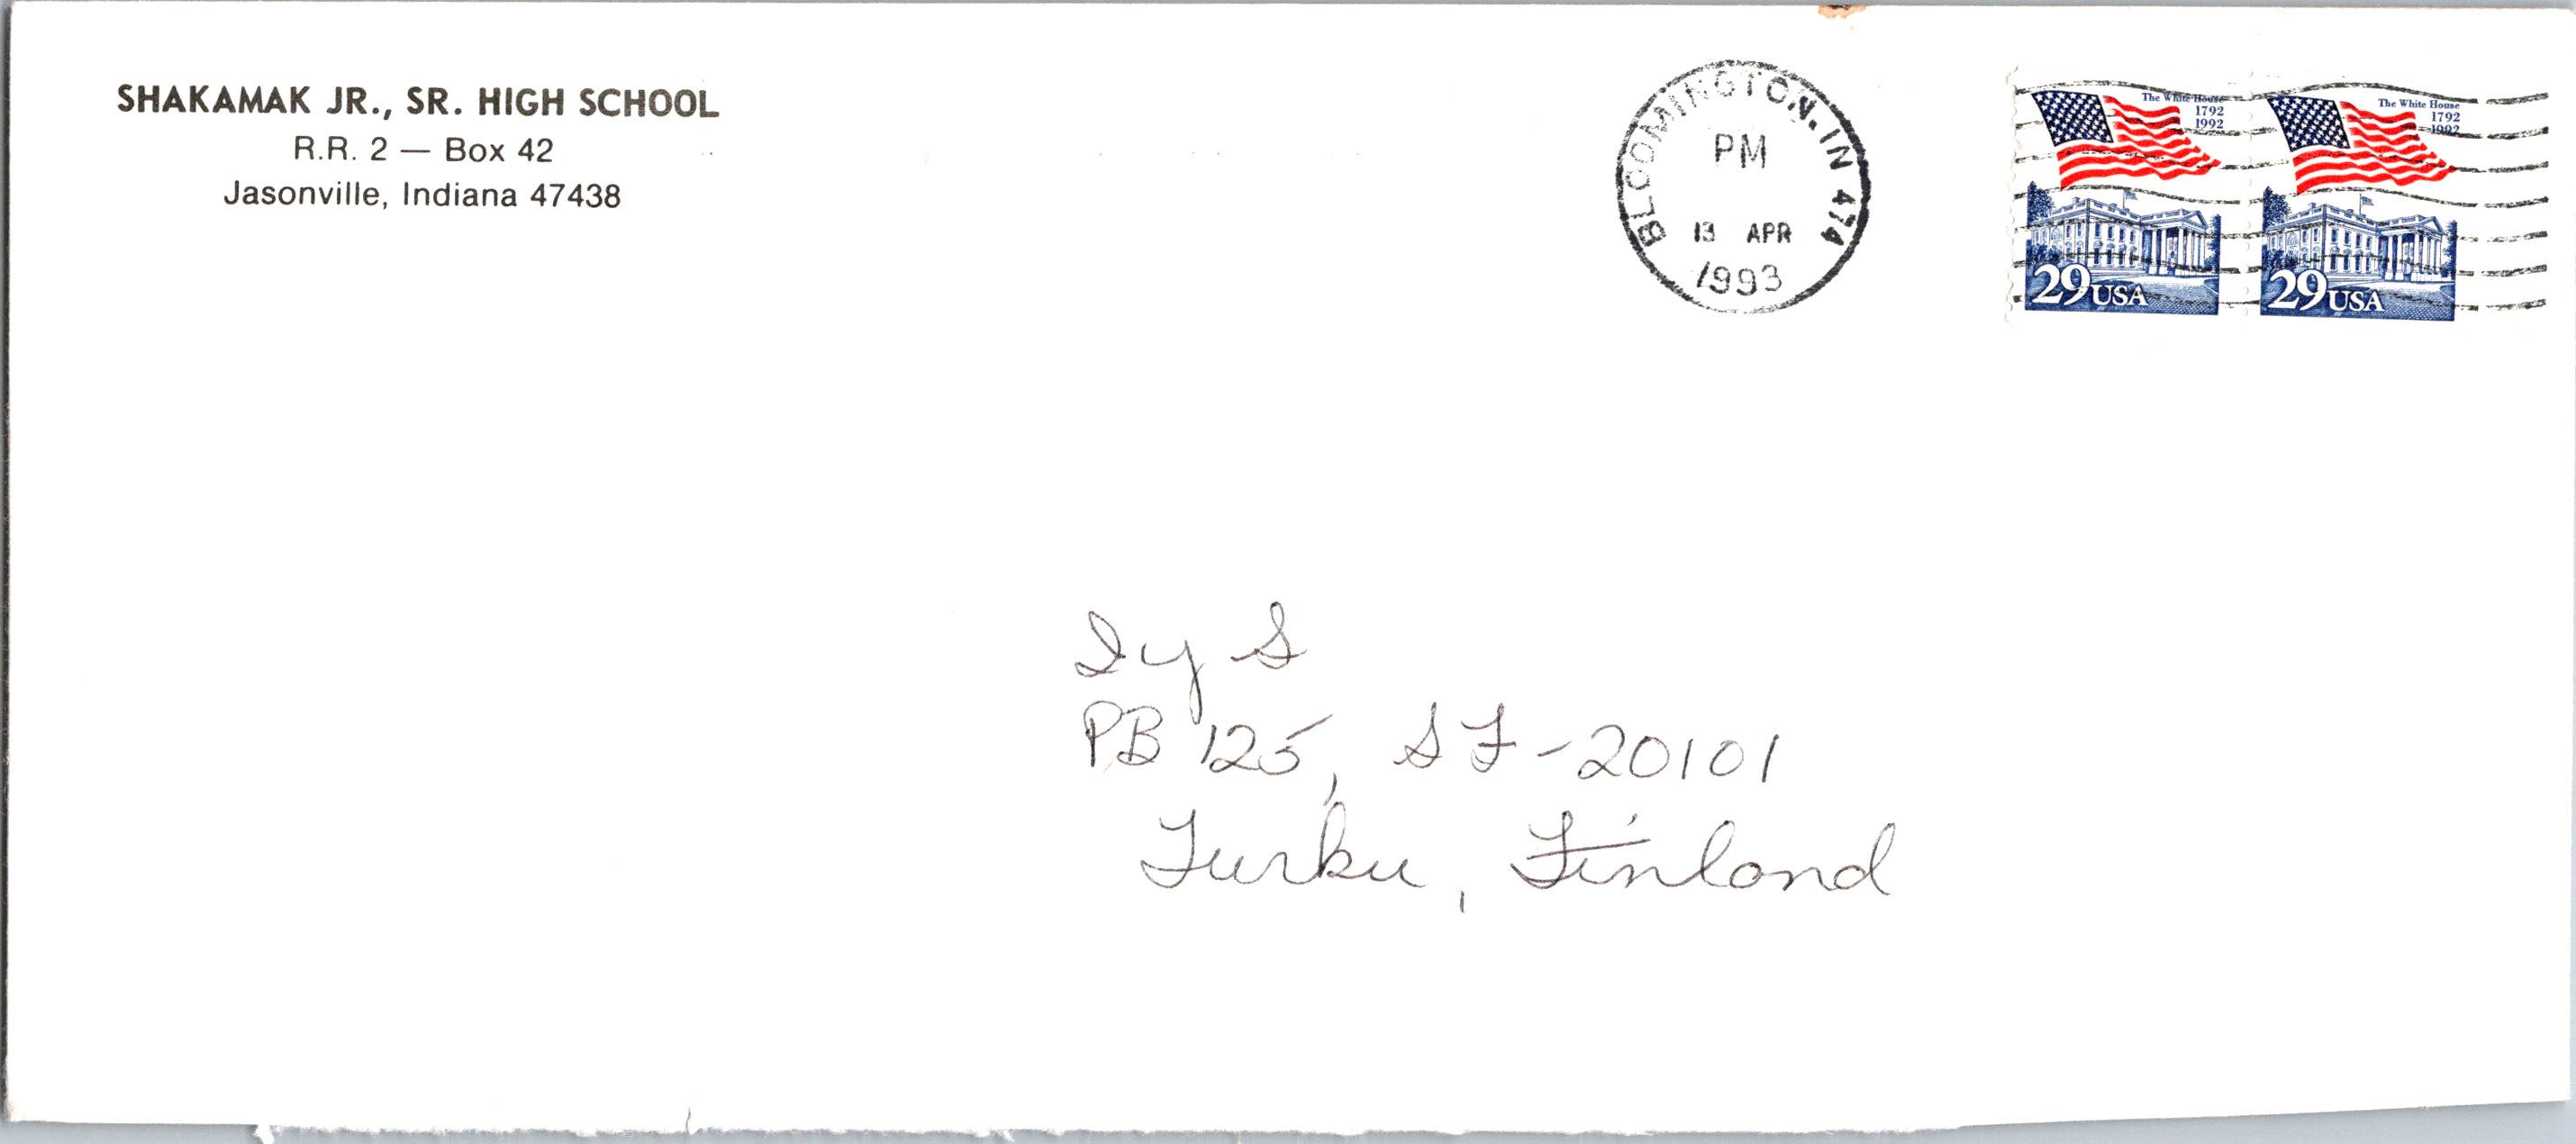 SHAKAMAK JR., SR. HIGH SCHOOL
R.R. 2 — Box 42
Jasonville, Indiana 47438
BLOOMINGTON, IN 474
PM
13 APR
1993
The White House
1792
1992
29 USA
The White House
1792
1992
29 USA
Iy S
PB 125, SF-20101
Turku, Finland